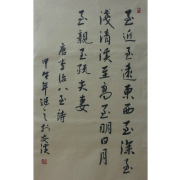 至近至遠東西至深至
淺清溪至高至明日月
至親至疏夫妻
唐李冶八至詩
甲午年